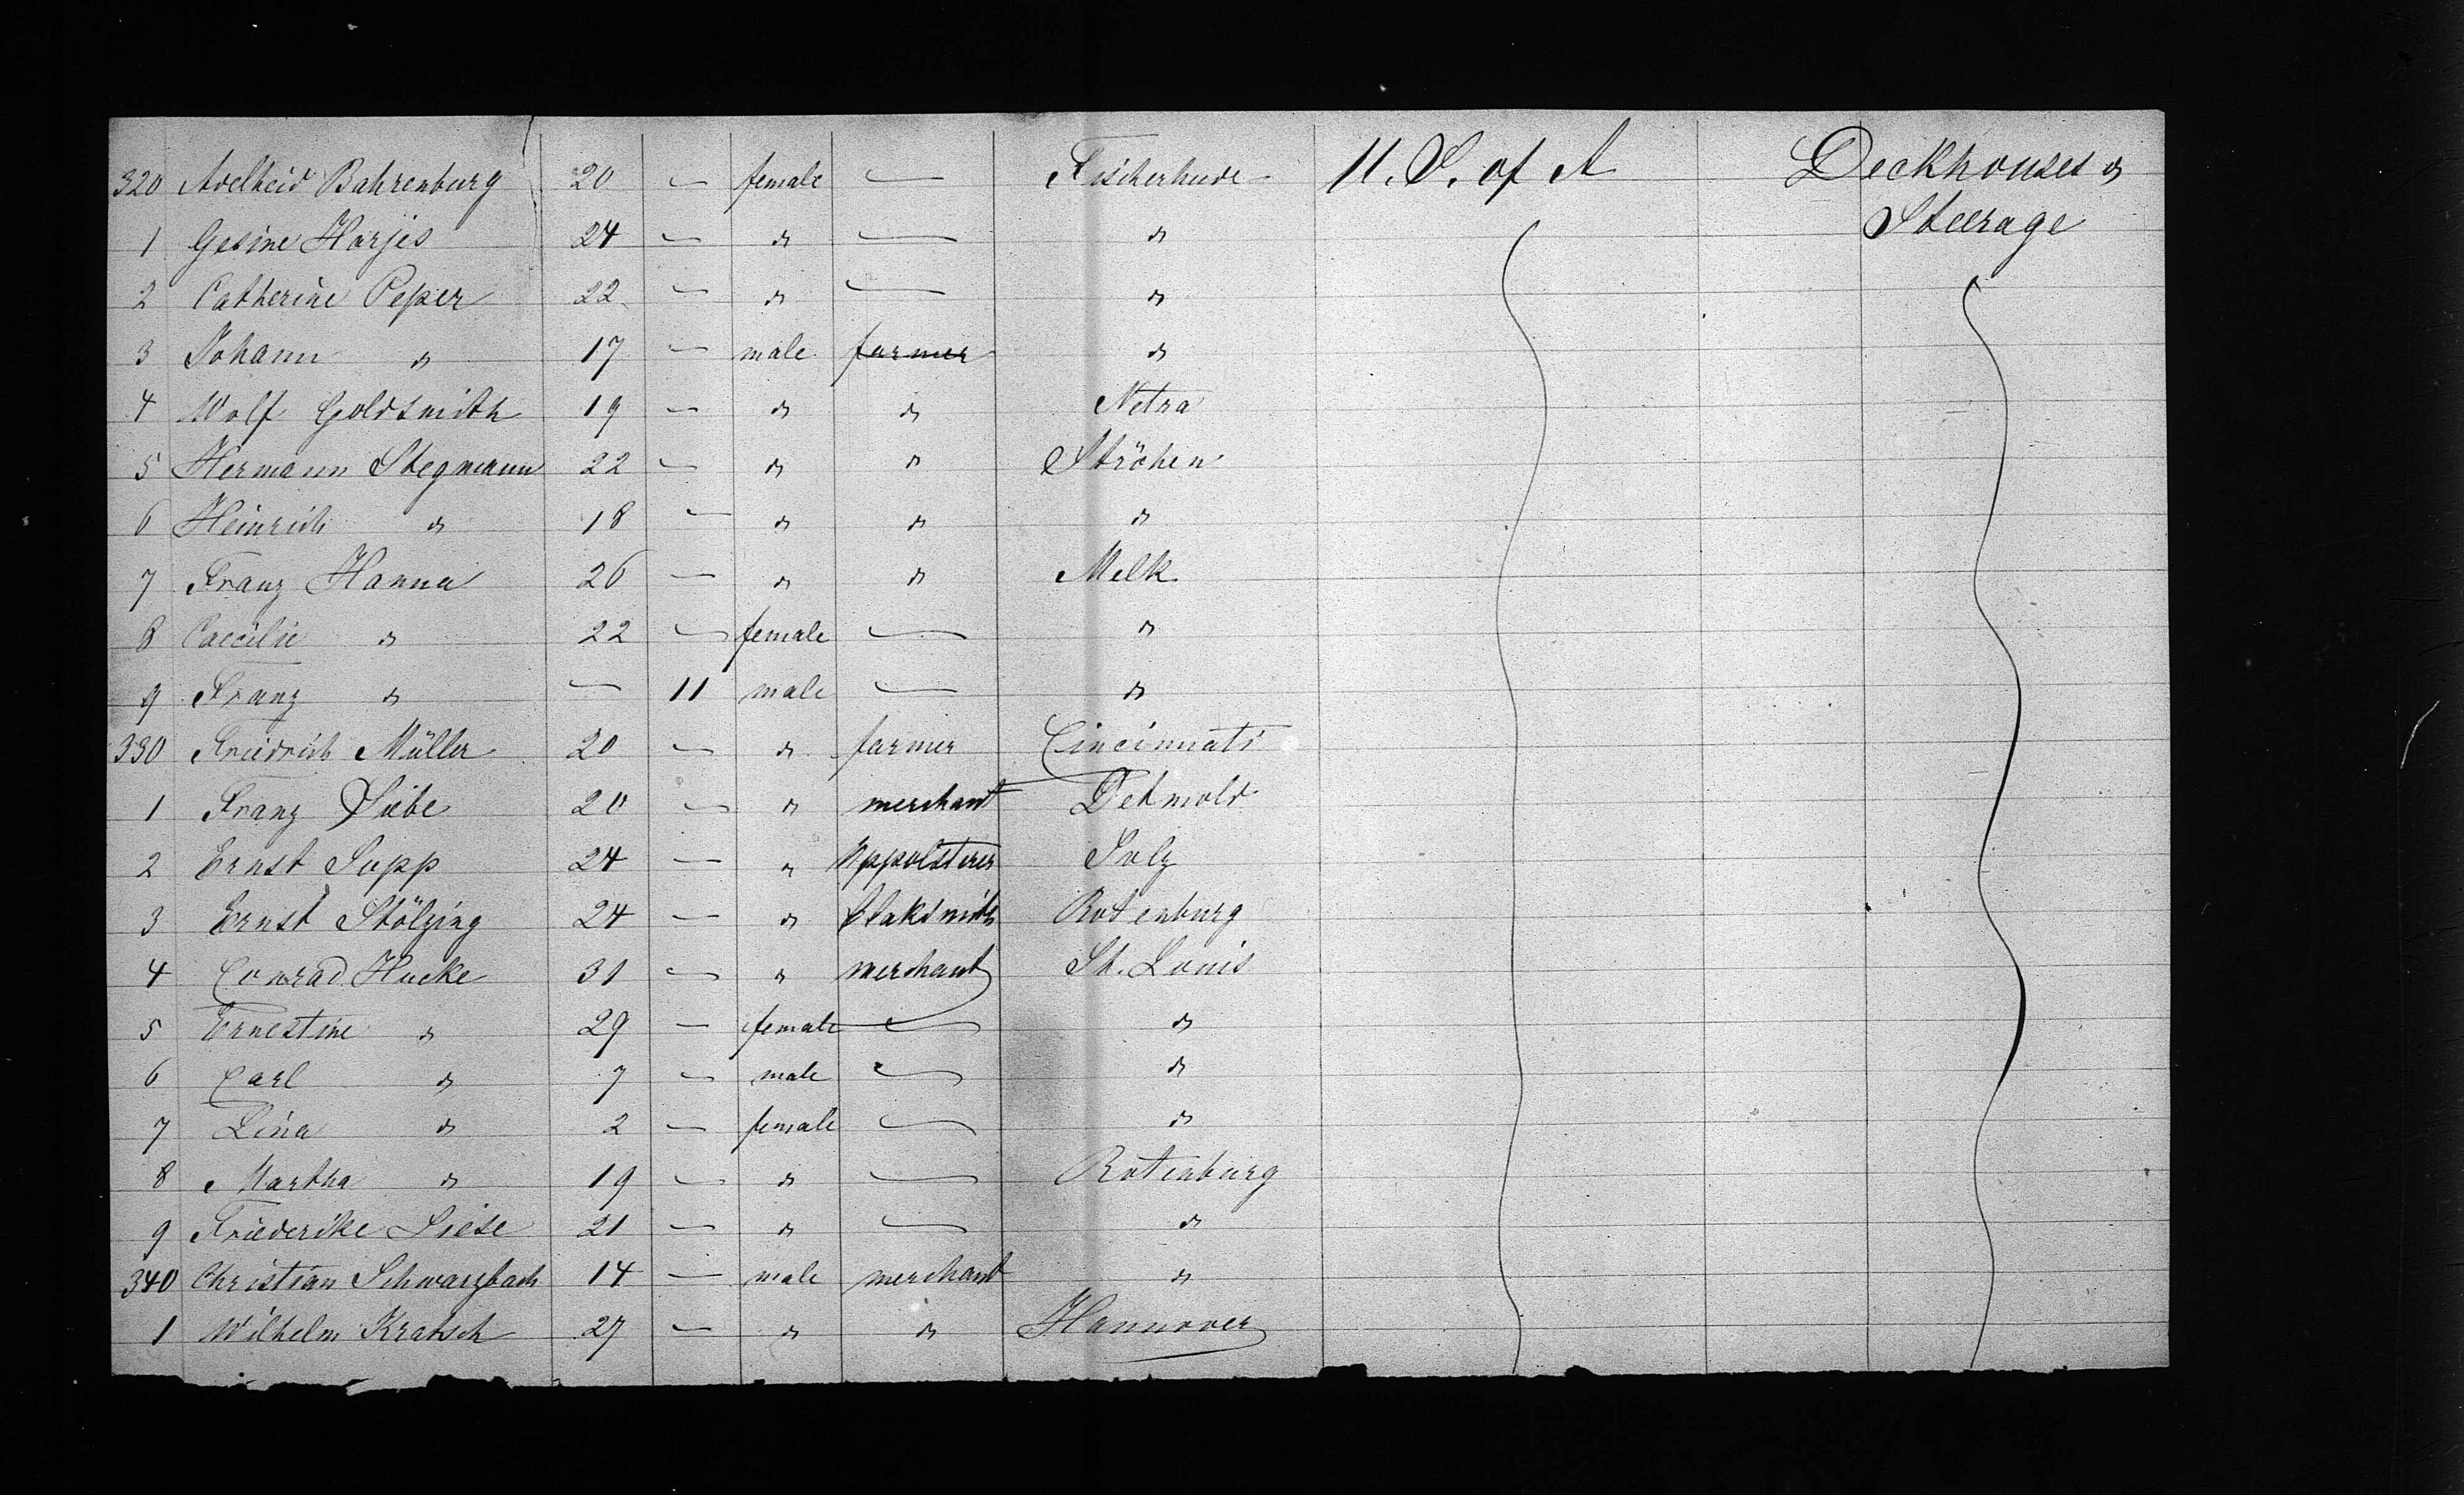 320 Adelheid Bahrenburg 20 — female — Fischerhude U. S. of A Deckhouses &
1 Gesine Harjes 24 — " — " Steerage
2 Catherine Peper 22 — " — "
3 Johann " 17 — male farmer "
4 Wolf Goldsmith 19 — " " Netra
5 Hermann Stegmann 22 — " " Ströhen
6 Heinrich " 18 — " " "
7 Franz Hanna 26 — " " Melk
8 Caecilie " 22 — female — "
9 Franz " — 11 male — "
330 Friedrich Müller 20 — " farmer Cincinnati
1 Franz 20 — " merchant Detmold
2 Ernst Supp 24 — " Uppolsterer Sulz
3 Ernst Stölzing 24 — " Blaksmith Rotenburg
4 Conrad Hucke 31 — " merchant St. Louis
5 Ernestine " 29 — female — "
6 Carl " 7 — male — "
7 Lina " 2 — female — "
8 Martha " 19 — " — Rotenburg
9 Friederike Siese 21 — " — "
340 Christian Schwarzbach 14 — male merchant "
1 Wilhelm Kratsch 27 — " " Hannover